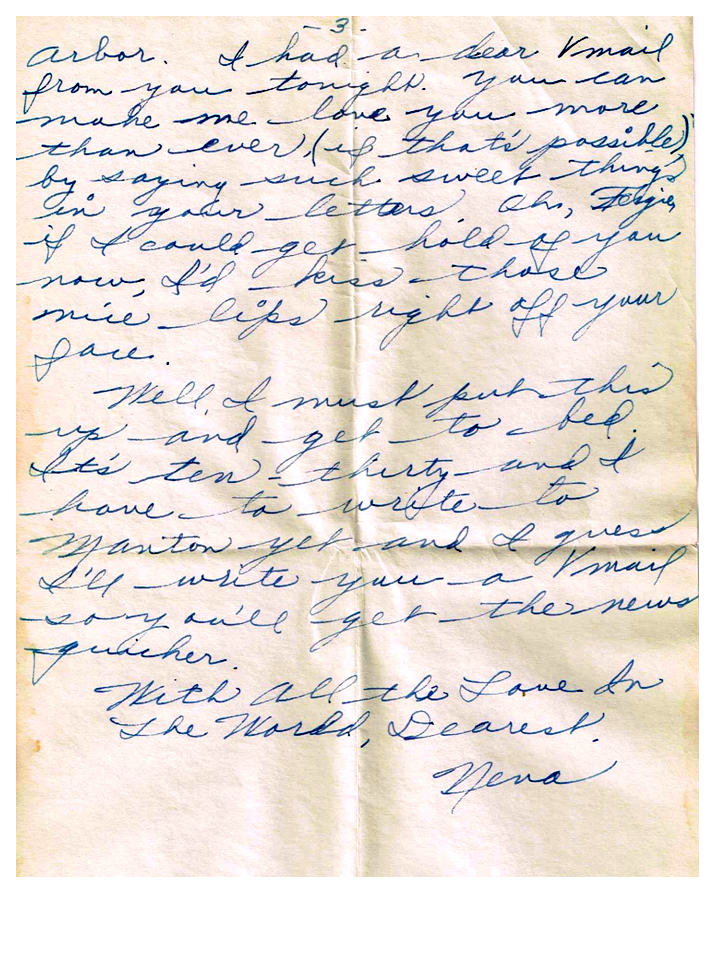 - 3 -
Arbor. I had a dear Vmail
from you tonight. You can
make me love you more
than ever, (if that's possible)
by saying such sweet things
in your letters. Oh, Fergie,
if I could get hold of you
now, I'd kiss those
nice lips right off your
face.
Well, I must put this
up and get to bed.
It's ten-thirty and I
have to write to
Manton yet and I guess
I'll write you a Vmail
so you'll get the news
quicker.
With All the Love In
The World, Dearest.
Neva